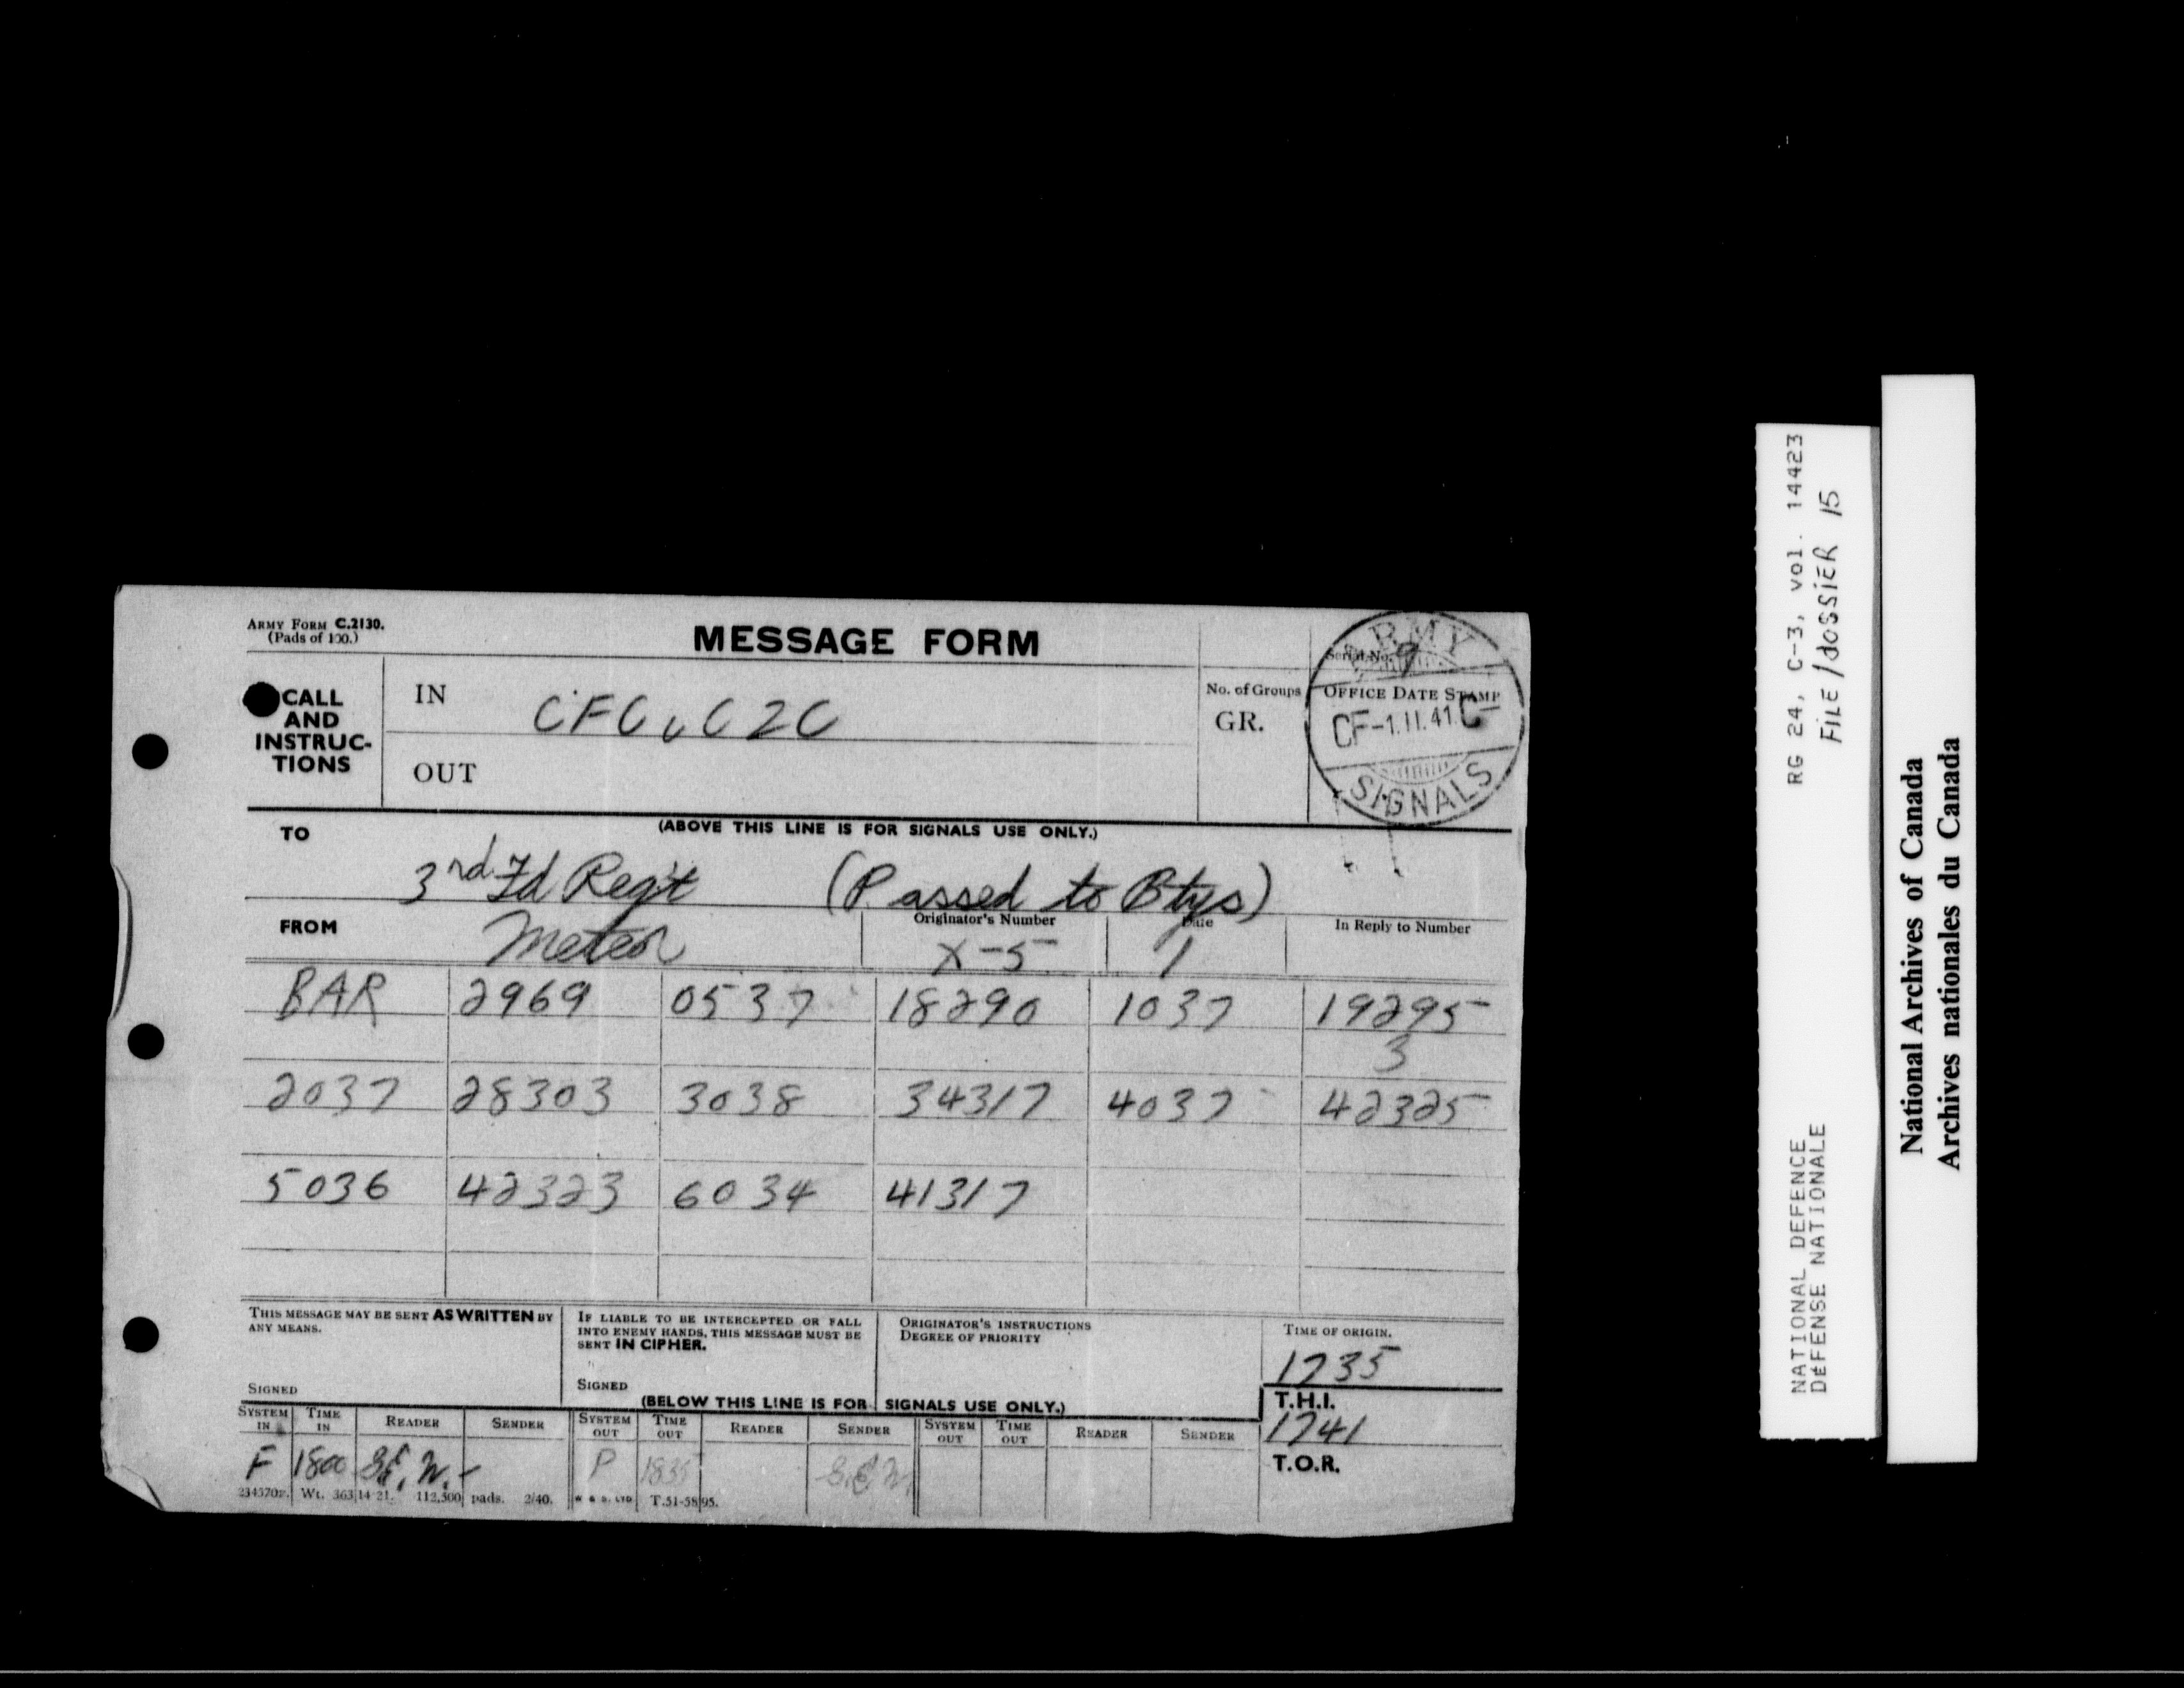 ARMY FORM C.2130.
(Pads of 100.)
MESSAGE FORM
Serial No. 9
CALL AND INSTRUC-TIONS
IN CFC v C2C
OUT
No. of Groups
GR.
ARMY
OFFICE DATE STAMP
CF -1.11.41 C
SIGNALS
(ABOVE THIS LINE IS FOR SIGNALS USE ONLY.)
TO
3rd Fd Regt (Passed to Btys)
FROM Meteor
Originator's Number X-5
Date 1
In Reply to Number
BAR 2969 0537 18290 1037 19295
3
2037 28303 3038 34317 4037 42325
5036 42323 6034 41317
THIS MESSAGE MAY BE SENT AS WRITTEN BY ANY MEANS.
SIGNED
IF LIABLE TO BE INTERCEPTED OR FALL INTO ENEMY HANDS, THIS MESSAGE MUST BE SENT IN CIPHER.
SIGNED
ORIGINATOR'S INSTRUCTIONS
DEGREE OF PRIORITY
TIME OF ORIGIN.
1735
T.H.I.
1741
T.O.R.
(BELOW THIS LINE IS FOR SIGNALS USE ONLY.)
SYSTEM IN TIME IN READER SENDER SYSTEM OUT TIME OUT READER SENDER SYSTEM OUT TIME OUT READER SENDER
F 1800 P 1835
Wt. 363/14 21. 112,500 pads. 2/40. W & S. LTD T.51-5895.
RG 24, C-3, vol. 14423
FILE/dOSSiER 15
NATIONAL DEFENCE
DéFENSE NATIONALE
National Archives of Canada
Archives nationales du Canada